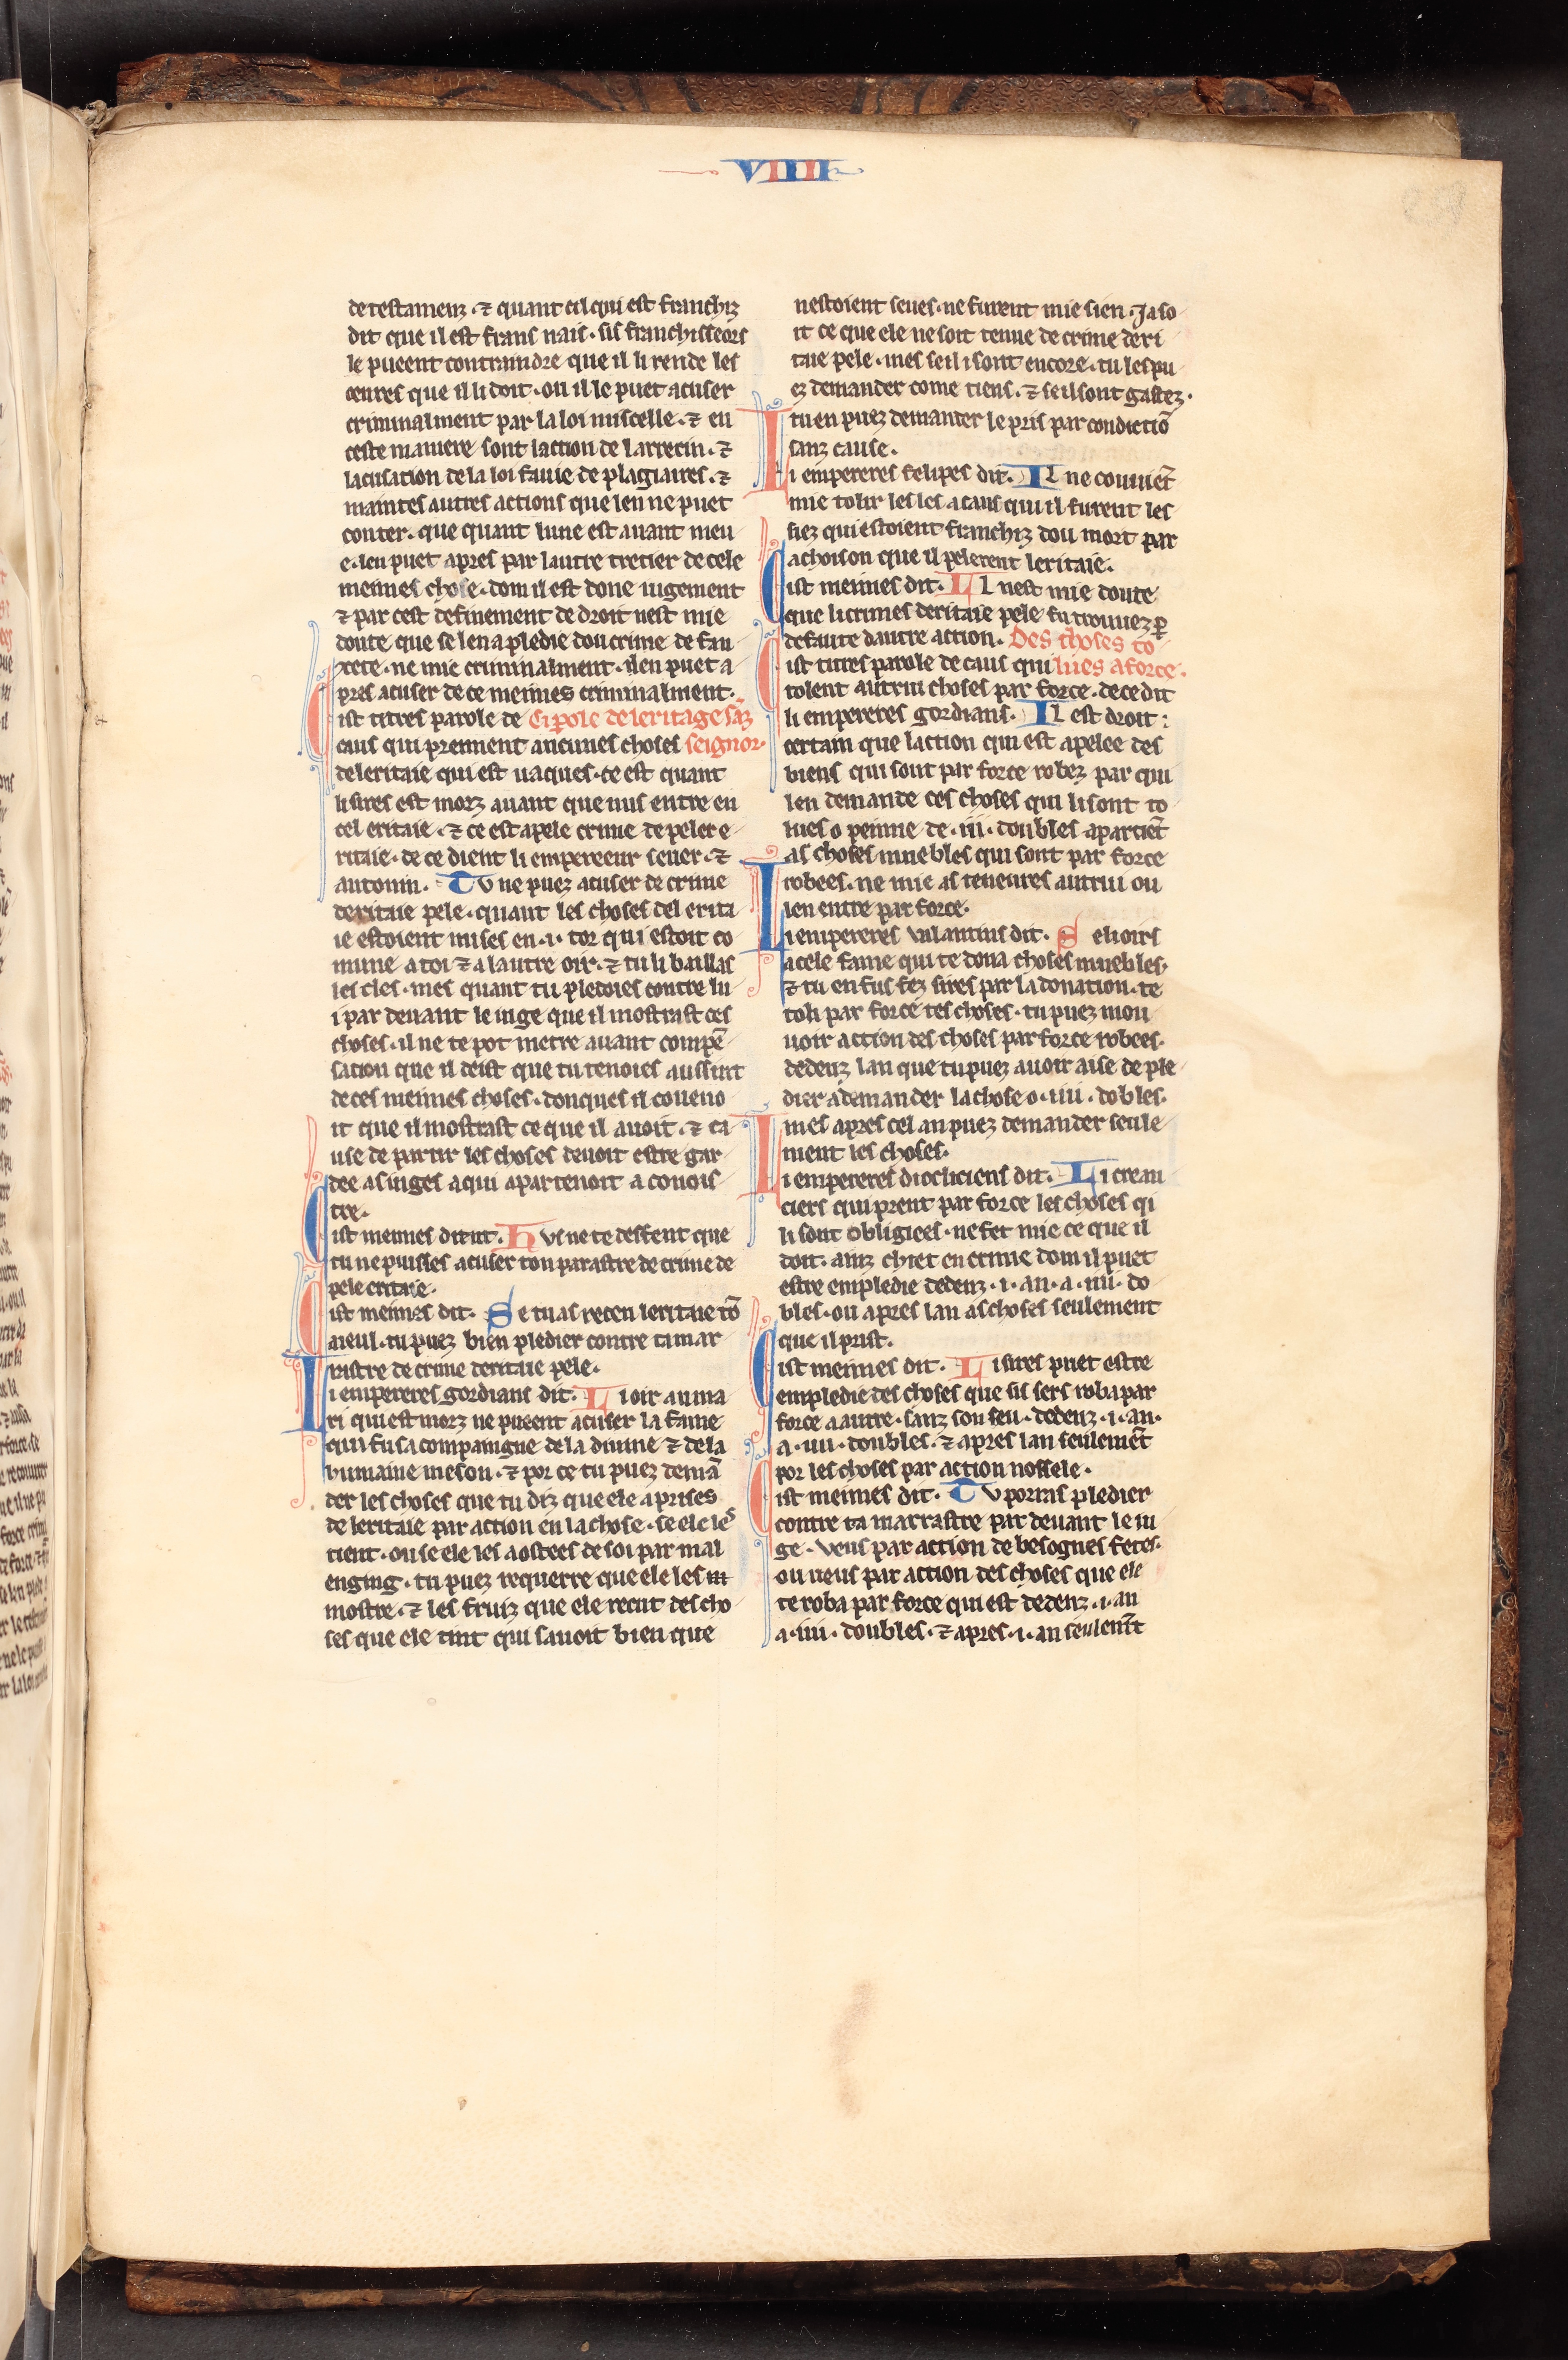 VIIII
de testamenz · ⁊ quant cil qui est franchiz
dit que il est frans nais · sis franchisseors
le pueent contraindre que il li rende les
oeures que il li doit · ou il le puet acuser
criminalment par la loi uiscelle · ⁊ en
ceste maniere sont laction de larrecin · ⁊
lacusation de la loi fauie de plagiaires · ⁊
maintes autres actions que len ne puet
conter · que quant lune est auant meu
e · len puet apres par lautre tretier de cele
meimes chose · dom il est done iugement
⁊ par cest definement de droit nest mie
doute que se len a pledie dou crime de fau
xete · ne mie criminalment · il en puet a
pres acuser de ce meimes criminalment ·
Cist titres parole de Ci parole de leritage sāz
caus qui prennent aucunes choses seignor ·
de leritaie qui est uaques · ce est quant
li sires est morz auant que nus entre en
cel eritaie · ⁊ ce est apele crime de pele e
ritaie · de ce dient li empereeur seuer · ⁊
antonin . Tu ne puez acuser de crime
deritaie pele · quant les choses del erita
ie estoient mises en · i · tor qui estoit co
mune a toi ⁊ a lautre oir · ⁊ tu li baillas
les cles · mes quant tu pledoies contre lu
i par deuant le iuge que il mostrast ces
choses · il ne te pot metre auant compē
sation que il deist que tu tenoies aussint
de ces meimes choses · donques il coueno
it que il mostrast ce que il auoit · ⁊ ca
use de partir les choses deuoit estre gar
dee as iuges a qui apartenoit a conois
tre ·
Cist meimes dit · Hus ne te deffent que
tu ne puisses acuser ton parastre de crime de
pele eritaie ·
Cist meimes dit · Se tu as receu leritaie tō
aieul · tu puez bien pledier contre ta mar
rastre de crime deritaie pele ·
Li empereres gordians dit · Li oir au ma
ri qui est morz ne pueent acuser la fame
qui fu sa compaingne de la diuine ⁊ de la
humaine meson · ⁊ por ce tu puez demā
der les choses que tu diz que ele a prises
de leritaie par action en la chose · se ele les
tient · ou se ele les a ostees de soi par mal
enging · tu puez requerre que ele les
mostre · ⁊ les fruiz que ele recut des cho
ses que ele tint qui sauoit bien que
nestoient seues · ne furent mie sien · Ja so
it ce que ele ne soit tenue de crime deri
taie pele · mes se il i sont encore · tu les pu
ez demander come tiens · ⁊ se il sont gastez ·
tu en puez demander le pris par condictiō
sanz cause ·
Li empereres felipes dit · Il ne couuiēt
mie tolir les les a caus qui il furent les
fiez qui estoient franchiz dou mort par
achoison que il pelerent leritaie ·
Cist meimes dit · Il nest mie doute
que li crimes deritaie pele fu trouuez p̱
defaute dautre action . Des choses to
Cist titres parole de caus qui lues a force ·
tolent autrui choses par force · de ce dit
li empereres gordians · Il est droit :
certain que laction qui est apelee des
biens qui sont par force robez par qui
len demande ces choses qui li sont to
lues o peinne de · iii · doubles apartiēt
as choses muebles qui sont par force
robees · ne mie as teneures autrui ou
len entre par force ·
Li empereres valantins dit · Se li oirs
a cele fame qui te dona choses muebles ·
⁊ tu en fus fez sires par la donation · te
toli par force tes choses · tu puez mou
uoir action des choses par force robees ·
dedenz lan que tu puez auoir aise de ple
dier a demander la chose o · iiii · dobles ·
mes apres cel an puez demander seule
ment les choses ·
Li empereres diocliciens dit · Li crean
ciers qui prent par force les choses qi
li sont obligiees · ne fet mie ce que il
doit · ainz chiet en crime dom il puet
estre empledie dedenz · i · an · a · iiii · do
bles · ou apres lan as choses seulement
que il prist ·
Cist meimes dit · Li sires puet estre
empledie des choses que sis sers roba par
force a autre · sanz son seu · dedenz · i · an ·
a · iiii · doubles · ⁊ apres lan seulemēt
por les choses par action nossele ·
Cist meimes dit · Tu porras pledier
contre ta marrastre par deuant le iu
ge · veus par action de besognes fetes ·
ou ueus par action des choses que ele
te roba par force qui est dedenz · i · an
a · iiii · doubles · ⁊ apres · i · an seulemēt